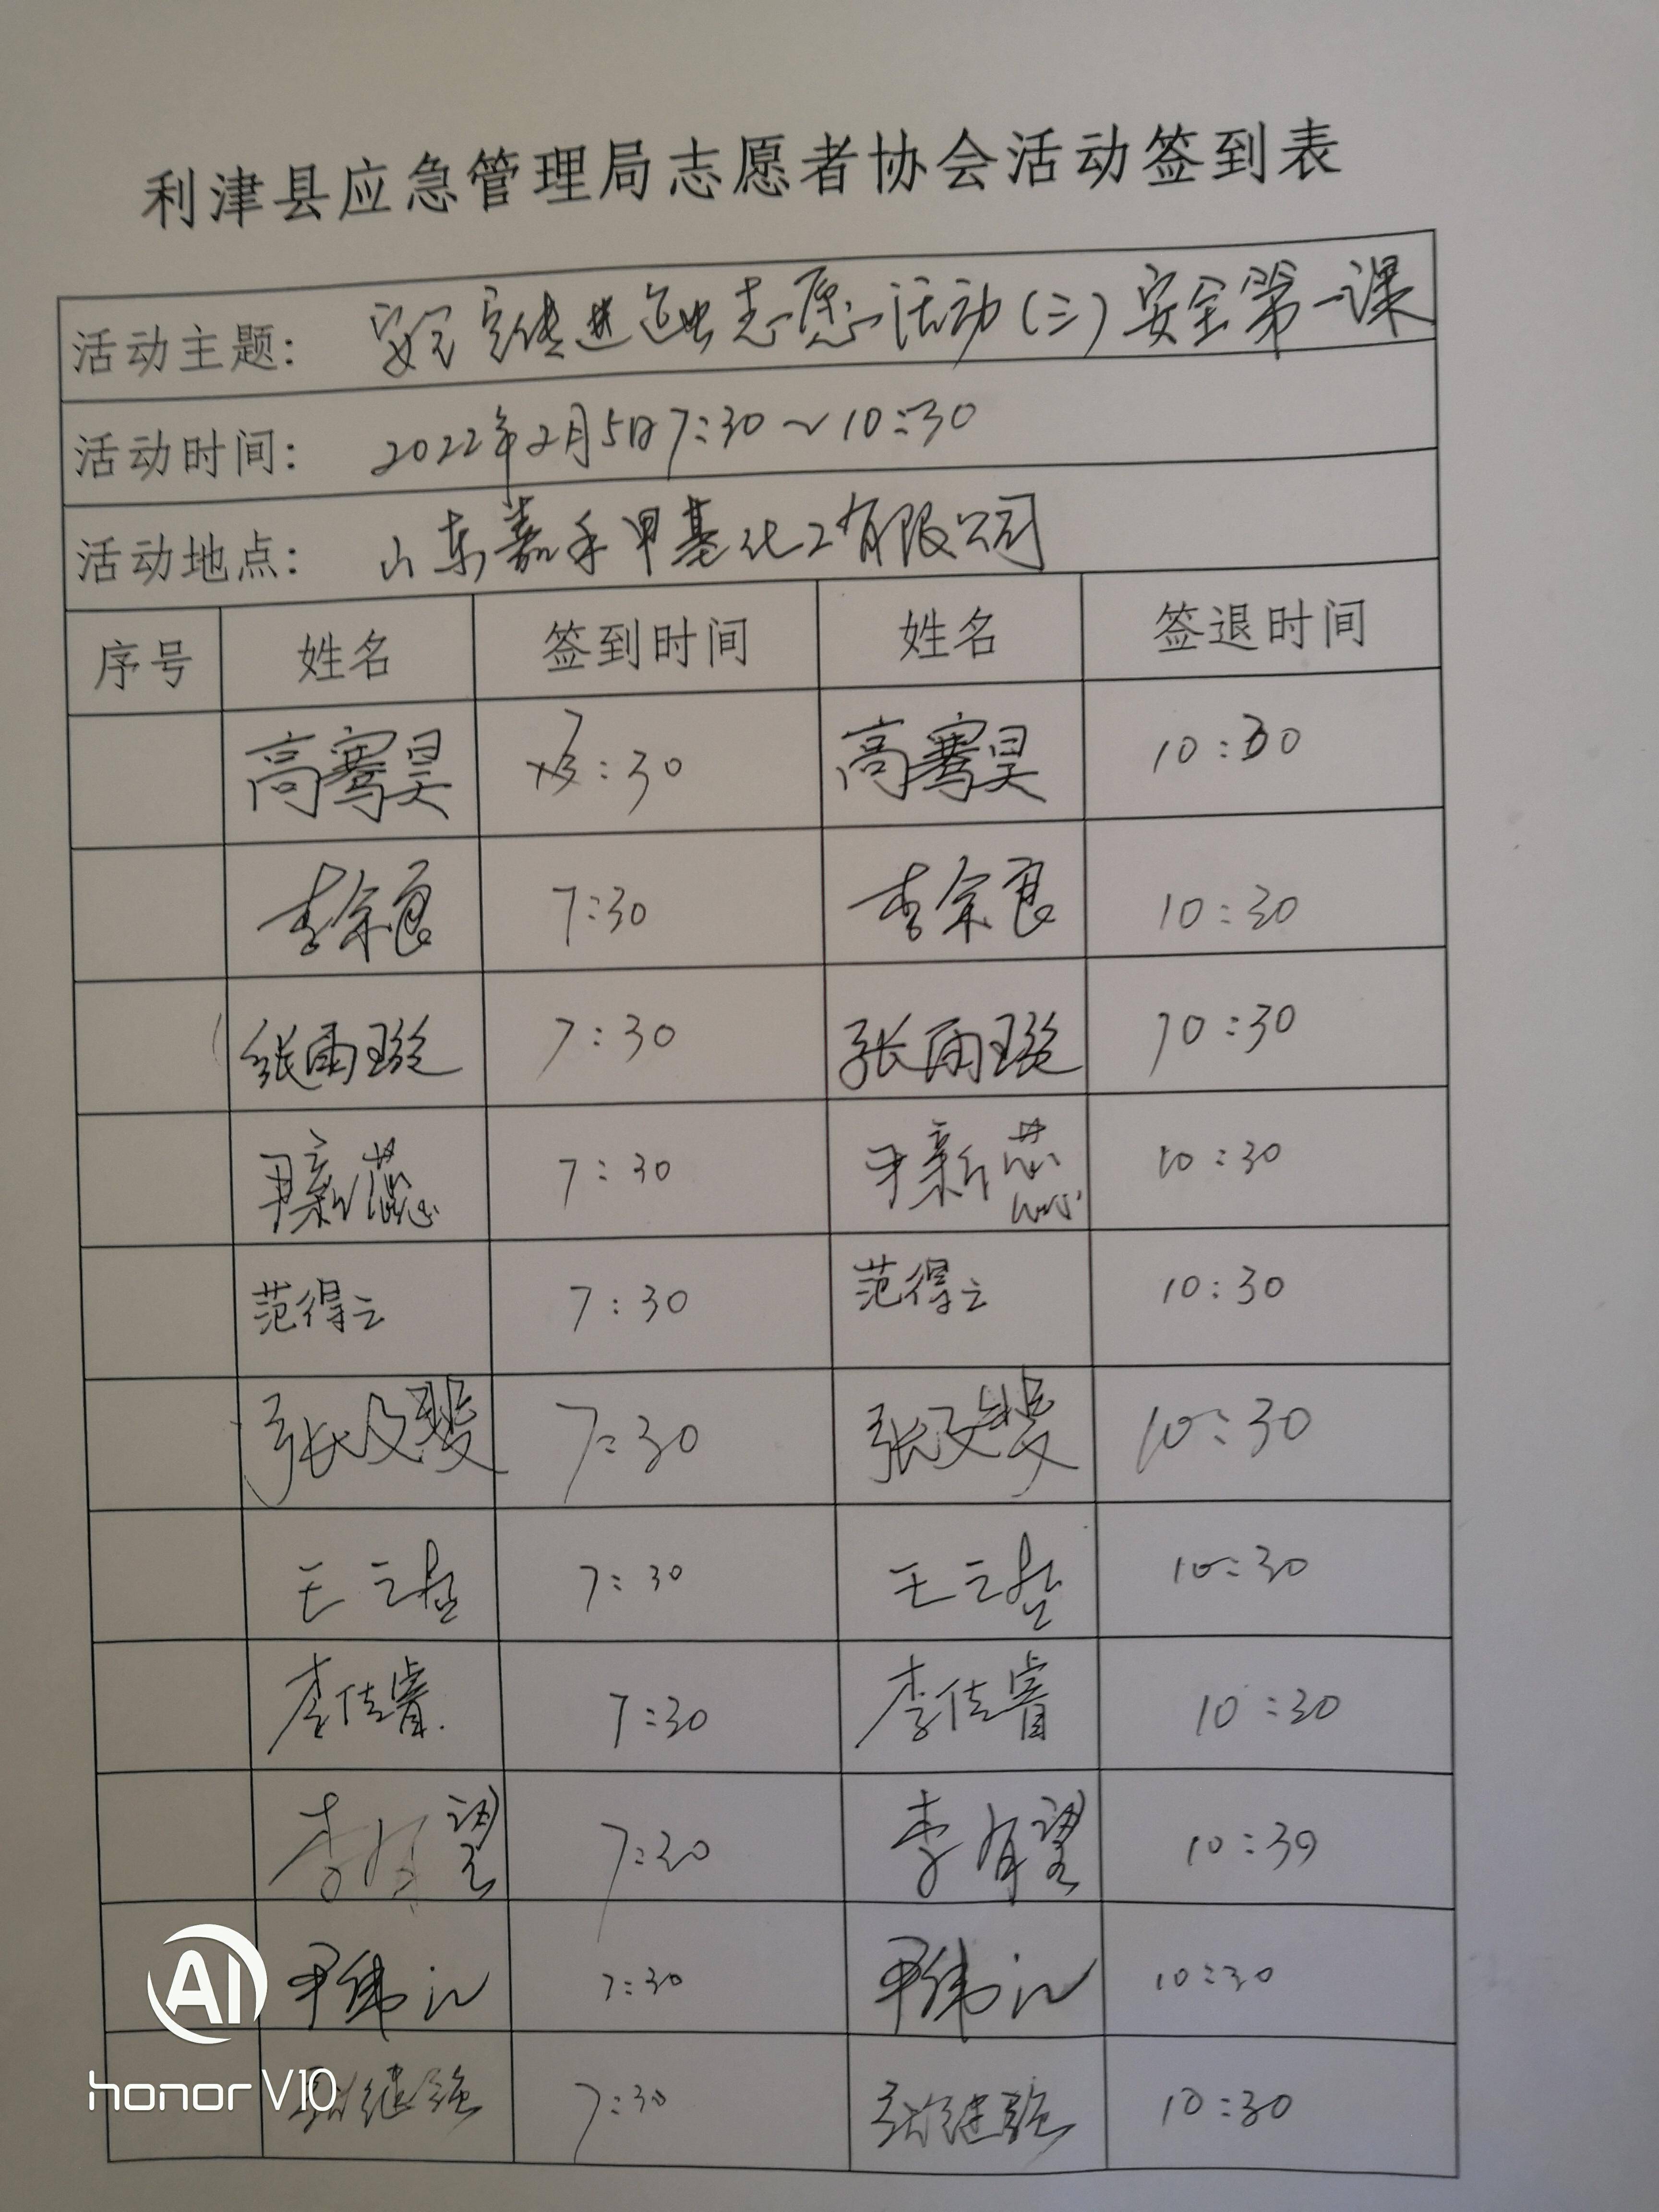 利津县应急管理局志愿者协会活动签到表
活动主题: 安全宣传进企业志愿活动(三)安全第一课
活动时间: 2022年2月5日7:30~10:30
活动地点: 山东嘉禾甲基化工有限公司
序号 姓名 签到时间 姓名 签退时间
高骞昊 7:30 高骞昊 10:30
李宗良 7:30 李宗良 10:30
张雨璇 7:30 张雨璇 10:30
尹新蕊 7:30 尹新蕊 10:30
范得云 7:30 范得云 10:30
张文斐 7:30 张文斐 10:30
王 7:30 王 10:30
李佳睿 7:30 李佳睿 10:30
李有望 7:30 李有望 10:30
尹纬江 7:30 尹纬江 10:30
继强 7:30 继强 10:30
AI
honor V10